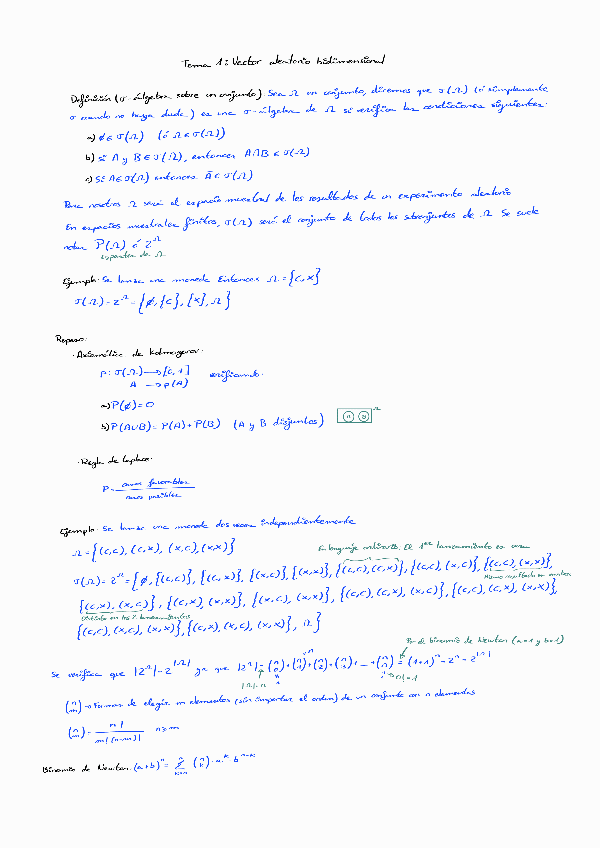 Tema 1: Vector aleatorio bidimensional
Definición (σ-álgebra sobre un conjunto) Sea Ω un conjunto, diremos que σ(Ω) (ó simplemente
σ cuando no haya duda) es una σ-álgebra de Ω si verifica las condiciones siguientes:
a) ∅ ∈ σ(Ω) (ó Ω ∈ σ(Ω))
b) si A y B ∈ σ(Ω), entonces A∩B ∈ σ(Ω)
c) Si A ∈ σ(Ω) entonces Ā ∈ σ(Ω)
Para nosotros Ω será el espacio muestral de los resultados de un experimento aleatorio
En espacios muestrales finitos, σ(Ω) será el conjunto de todos los subconjuntos de Ω. Se suele
notar P(Ω) ó 2^Ω
Ejemplo: Se lanza una moneda. Entonces Ω = {c, x}
σ(Ω) = 2^Ω = {∅, {c}, {x}, Ω}
Repaso:
· Axiomática de Kolmogorov:
P: σ(Ω) → [0, 1] verificando:
A → p(A)
a) P(∅) = 0
b) P(A∪B) = P(A) + P(B) (A y B disjuntos) A B Ω
· Regla de Laplace:
P = casos favorables / casos posibles
Ejemplo: Se lanza una moneda dos veces independientemente
Ω = {(c,c), (c,x), (x,c), (x,x)}
En lenguaje ordinario: El 1er lanzamiento es cara
σ(Ω) = 2^Ω = {∅, {(c,c)}, {(c,x)}, {(x,c)}, {(x,x)}, {(c,c), (c,x)}, {(c,c), (x,c)}, {(c,c), (x,x)},
Mismo resultado en ambos
{(c,x), (x,c)}, {(c,x), (x,x)}, {(x,c), (x,x)}, {(c,c), (c,x), (x,c)}, {(c,c), (c,x), (x,x)},
Distinto en los 2 lanzamientos
{(c,c), (x,c), (x,x)}, {(c,x), (x,c), (x,x)}, Ω}
Por el binomio de Newton (a=1 y b=1)
Se verifica que |2^Ω| = 2^|Ω| ya que |2^Ω| = (n 0) + (n 1) + (n 2) + (n 3) + ... + (n n) = (1+1)^n = 2^n = 2^|Ω|
|Ω| = n
(n m) → Formas de elegir m elementos (sin importar el orden) de un conjunto con n elementos
(n m) = n! / m!(n-m)! n ≥ m
Binomio de Newton: (a+b)^n = Σ (n k) · a^k b^(n-k)